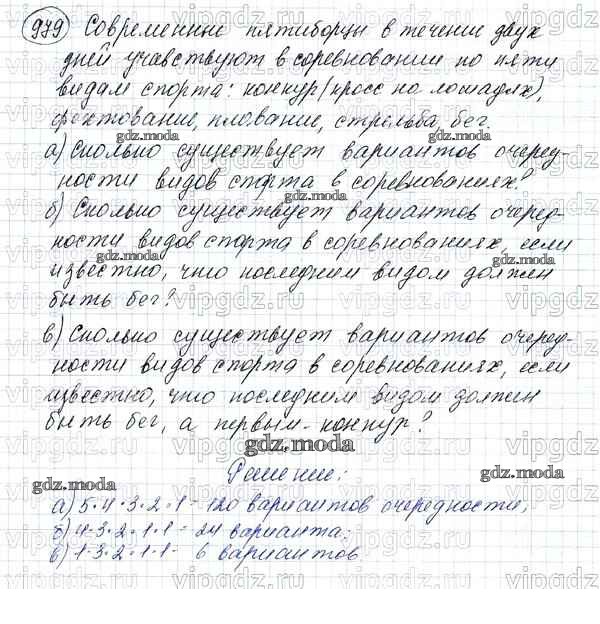 979 Современные пятиборцы в течении двух
дней учавствуют в соревновании по пяти
видам спорта: конкур (кросс на лошадях),
фехтование, плавание, стрельба, бег.
gdz.moda gdz.moda
а) Сколько существует вариантов очеред-
ности видов спорта в соревнованиях?
gdz.moda
б) Сколько существует вариантов очеред-
ности видов спорта в соревнованиях, если
gdz.moda gdz.moda
известно, что последним видом должен
быть бег?
в) Сколько существует вариантов очеред-
ности видов спорта в соревнованиях, если
gdz.moda gdz.moda
известно, что последним видом должен
быть бег, а первым - конкур?
gdz.moda
Решение:
gdz.moda gdz.moda
а) 5·4·3·2·1 = 120 вариантов очередности;
б) 4·3·2·1·1 = 24 варианта;
в) 1·3·2·1·1 = 6 вариантов